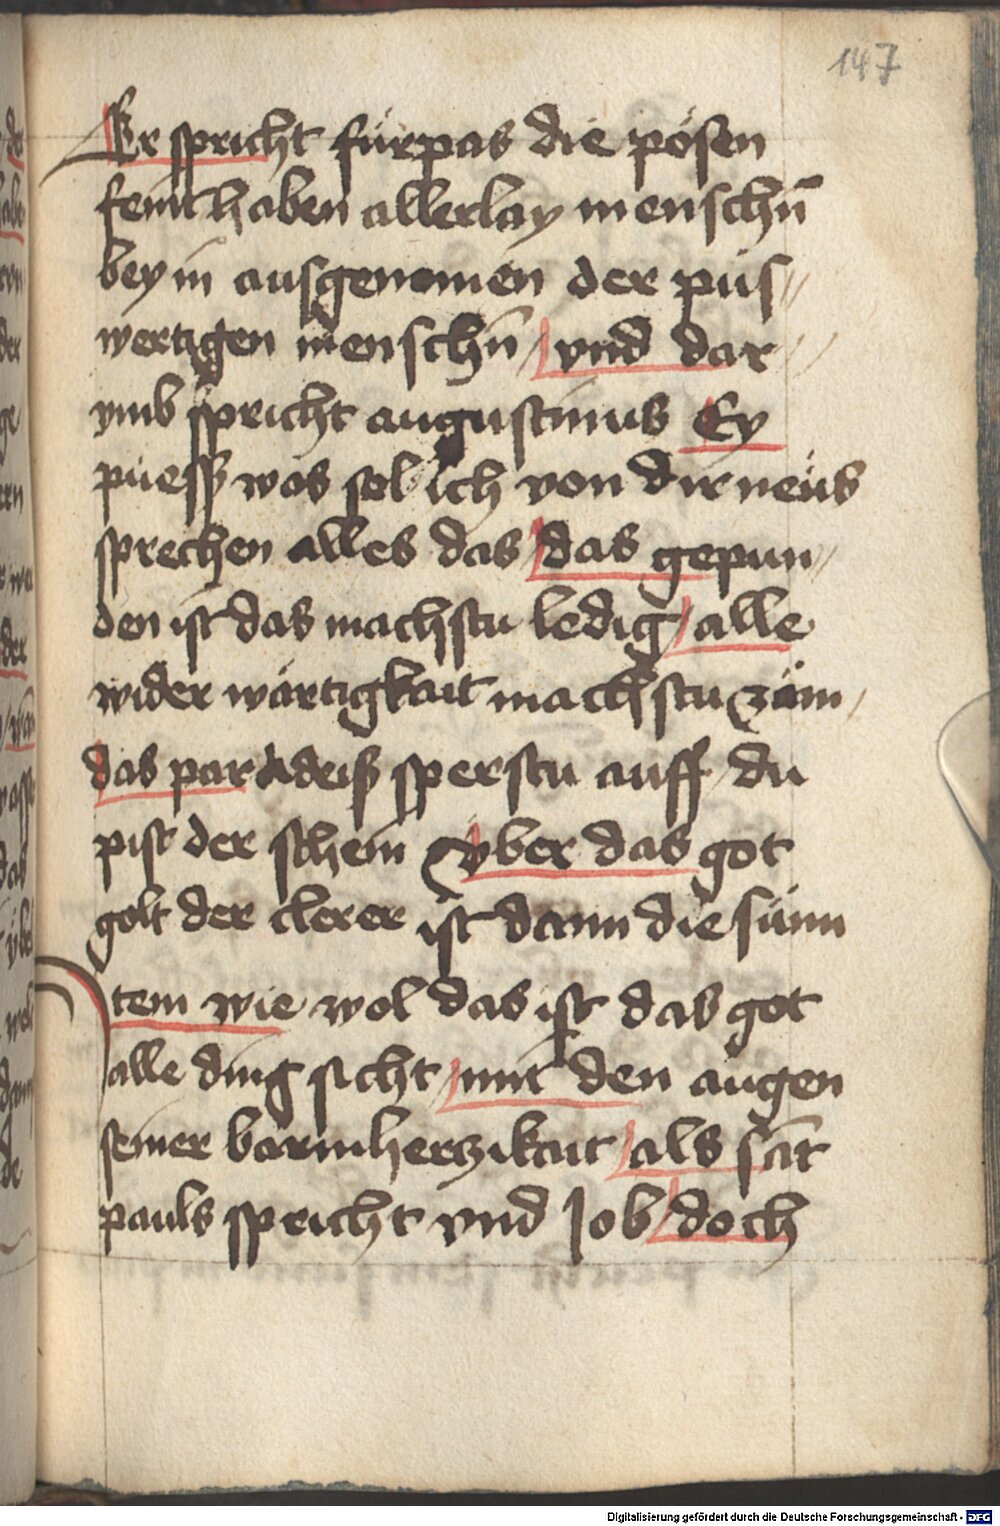 147
Er spricht fürpas die pösen
feint haben allerlay menschn̄
bey in ausgenomen der püs//
wertigen menschn̄ / vnd dar
vmb spricht augustinus Ey
puess was sol ich von dir neüs
sprechen alles das / das gepun/
den ist das machstu ledig / alle
wider wärtigkait machstu zäm/
das paradeiß sperstu auff du
pist der schein vber das got
golt der clerer ist dann die sünn
Item wie wol das ist das got
alle ding sicht / mit den augen
seiner barmhertzikait / als sāt
pauls spricht vnd Job / doch
Digitalisierung gefördert durch die Deutsche Forschungsgemeinschaft - DFG